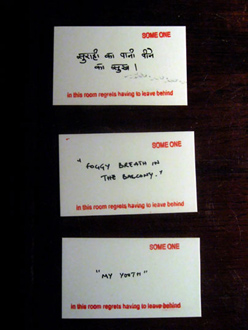 SOME ONE
सुराही का पानी पीने
का सुख।
In this room regrets having to leave behind
SOME ONE
"FOGGY BREATH IN
THE BALCONY."
In this room regrets having to leave behind
SOME ONE
"MY YOUTH"
In this room regrets having to leave behind